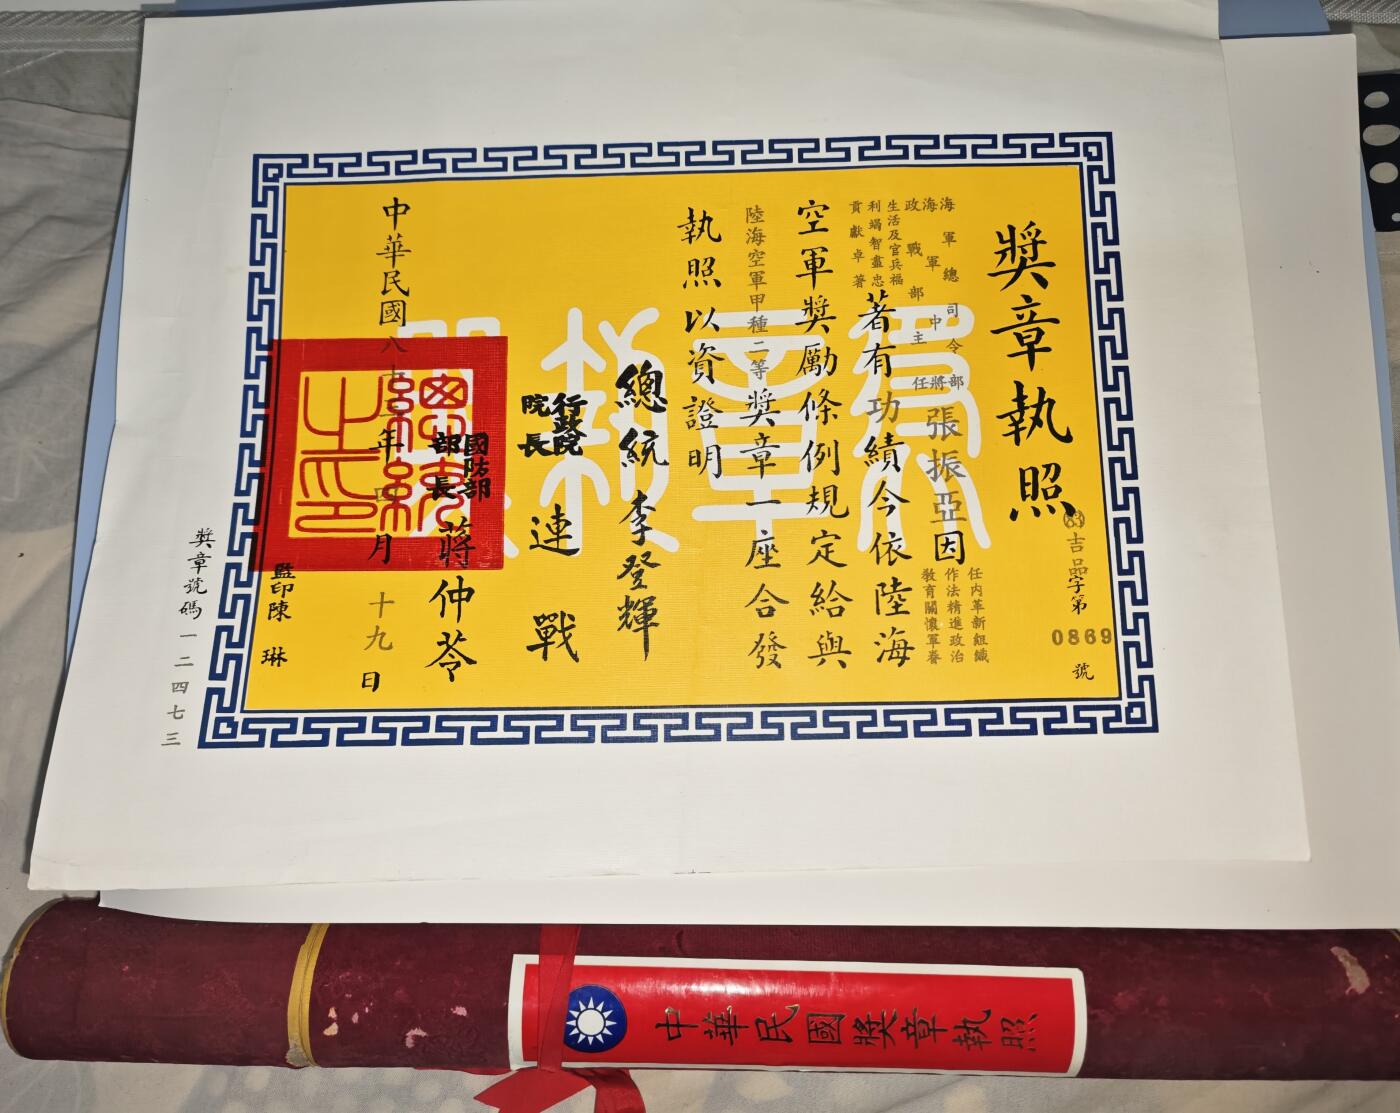 獎章執照
吉品字第0869號
海軍總司令部
海軍中將
政戰部主任
張振亞因
任內革新組織
作法精進政治
教育關懷軍眷
生活及官兵福
利竭智盡忠
貢獻卓著
著有功績今依陸海
空軍獎勵條例規定給與
陸海空軍甲種二等獎章一座合發
執照以資證明
總統 李登輝
行政院
院長
連戰
國防部
部長
蔣仲苓
中華民國八十年四月十九日
總統之印
監印陳琳
獎章號碼一二四七三
獎章執照
中華民國獎章執照